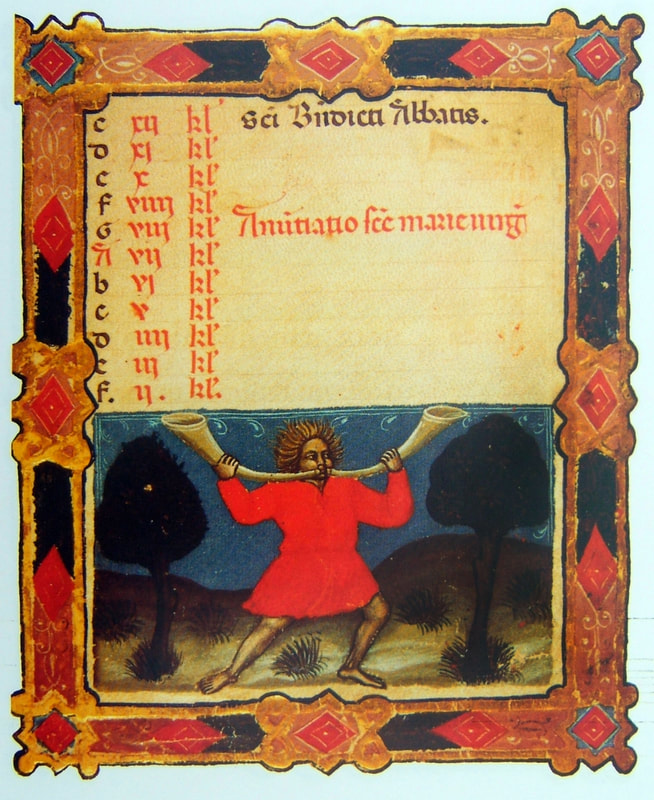 c xij kl' Sci Bn̄dicti Abbatis.
D xj kl'
e x kl'
f viiij kl'
G viij kl' Anūtiatio sc̄e marie uirḡ
A vij kl'
b vj kl'
c v kl'
D iiij kl'
e iij kl'
f. ij. kl'.